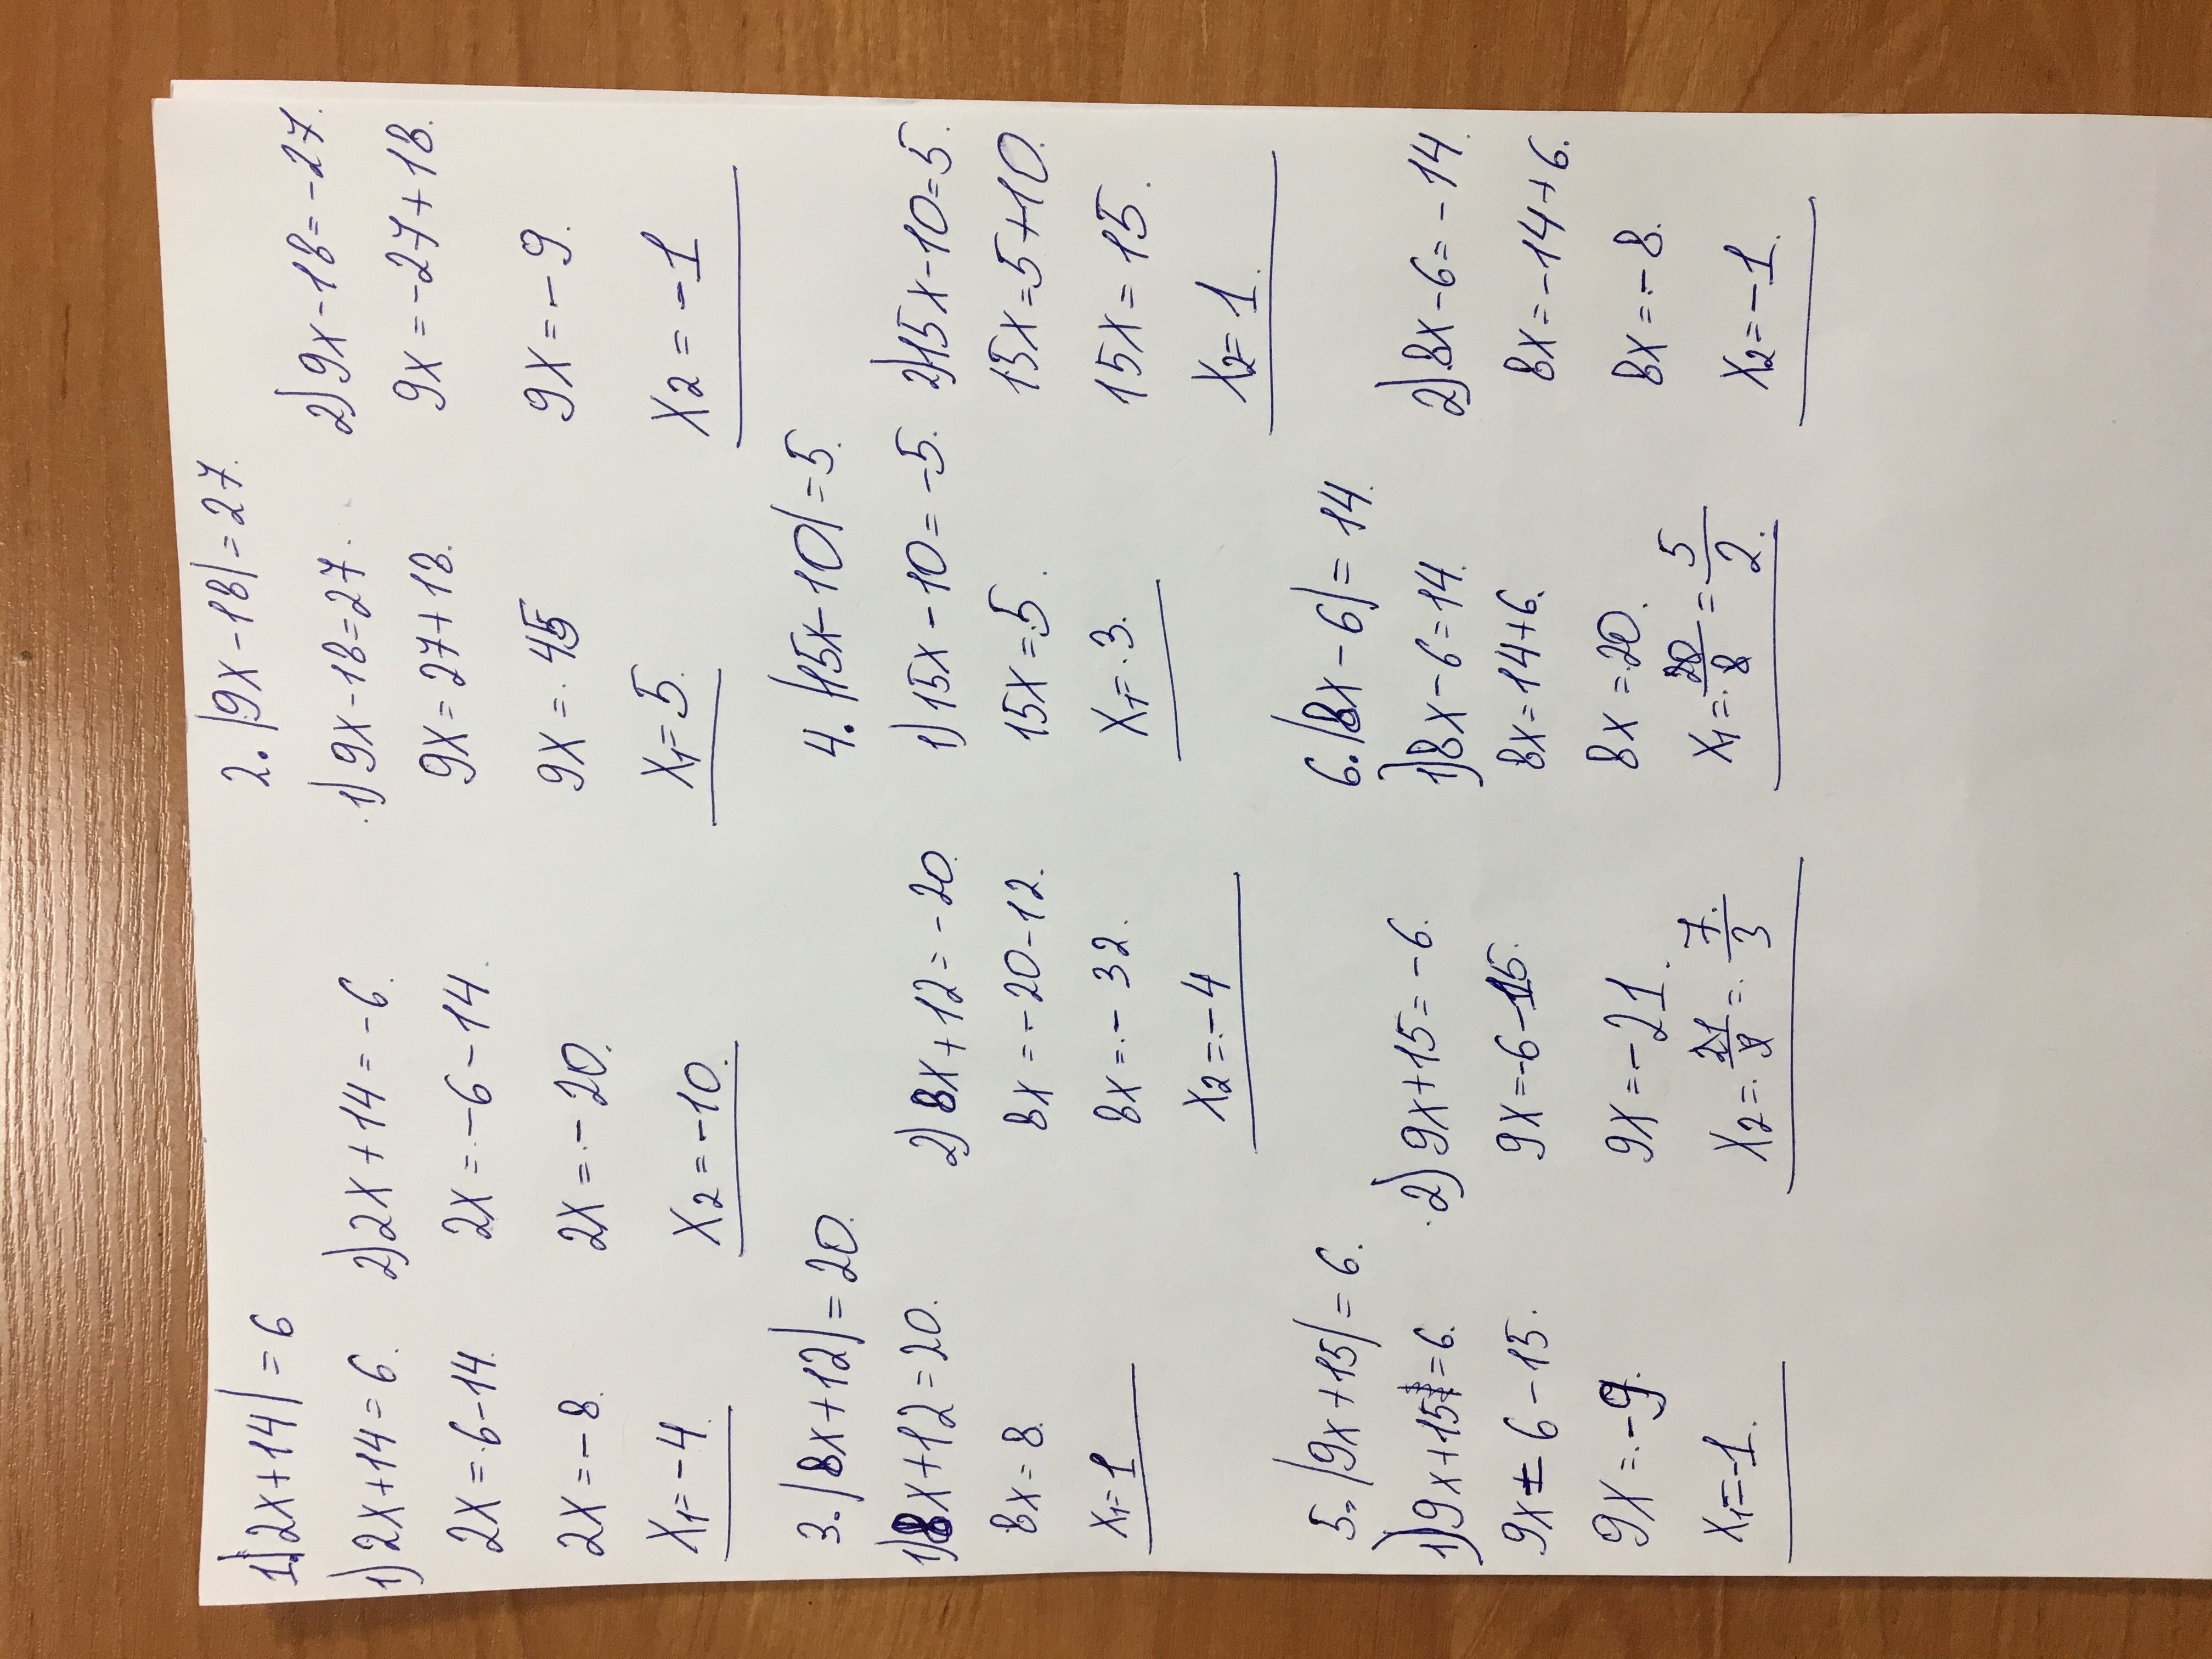 1. |2x+14|=6
1) 2x+14=6.
2x=6-14.
2x=-8.
x₁=-4.
2) 2x+14=-6.
2x=-6-14.
2x=-20.
x₂=-10.
2. |9x-18|=27.
1) 9x-18=27.
9x=27+18.
9x=45
x₁=5.
2) 9x-18=-27.
9x=-27+18.
9x=-9.
x₂=-1
3. |8x+12|=20.
1) 8x+12=20.
8x=8.
x₁=1
2) 8x+12=-20.
8x=-20-12.
8x=-32.
x₂=-4
4. |15x-10|=5.
1) 15x-10=-5.
15x=5.
x₁=3.
2) 15x-10=5.
15x=5+10.
15x=15.
x₂=1.
5. |9x+15|=6.
1) 9x+15=6.
9x=6-15.
9x=-9.
x₁=-1.
2) 9x+15=-6.
9x=-6-15.
9x=-21.
x₂=21/9=7/3
6. |8x-6|=14.
1) 8x-6=14.
8x=14+6.
8x=20.
x₁=20/8=5/2.
2) 8x-6=-14.
8x=-14+6.
8x=-8.
x₂=-1.